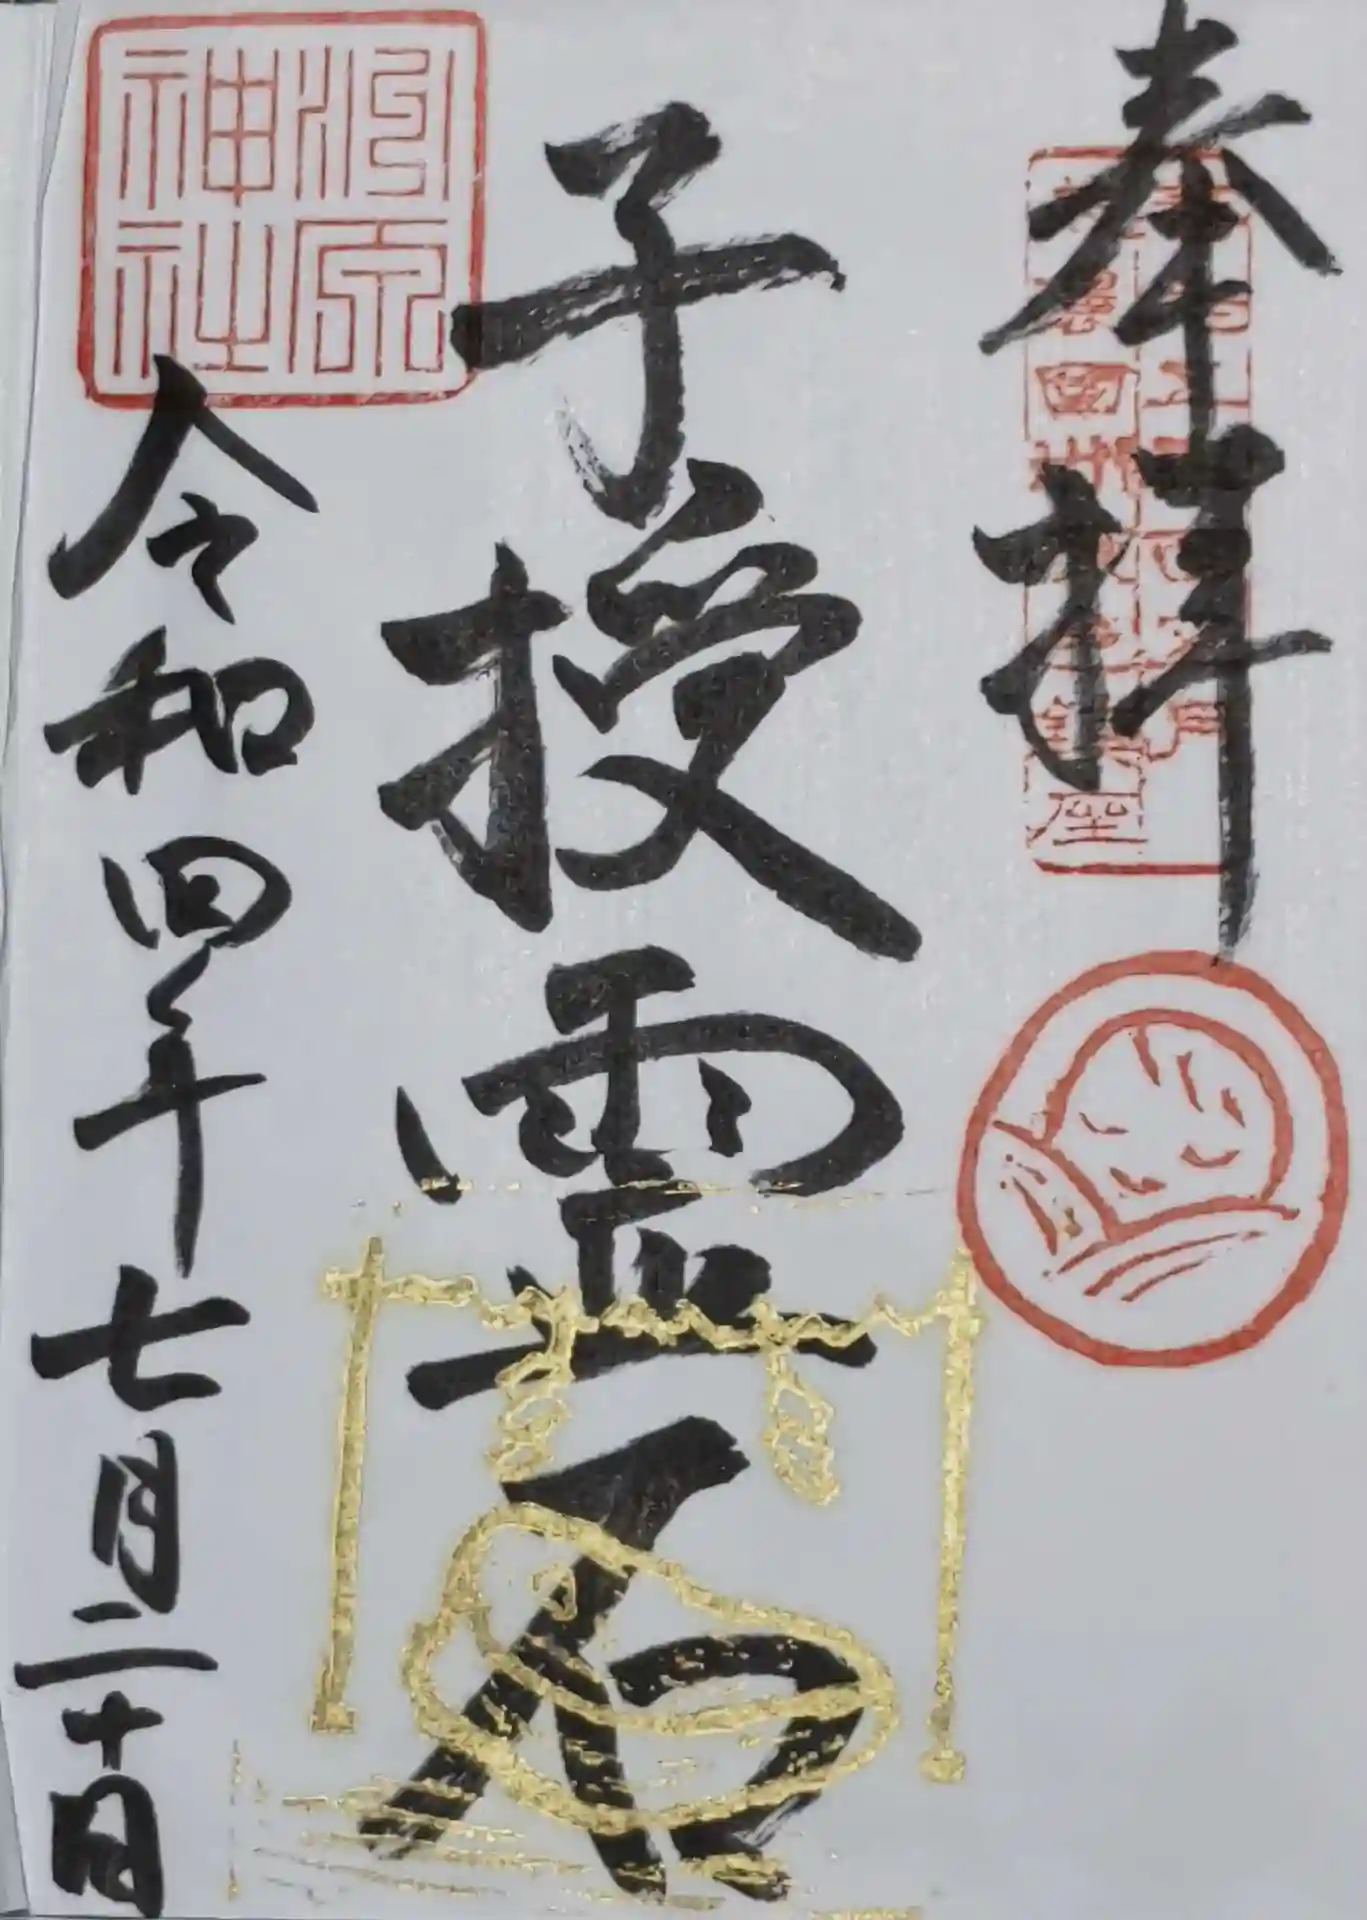 奉拝
子授霊石
神社
令和四年七月二十日